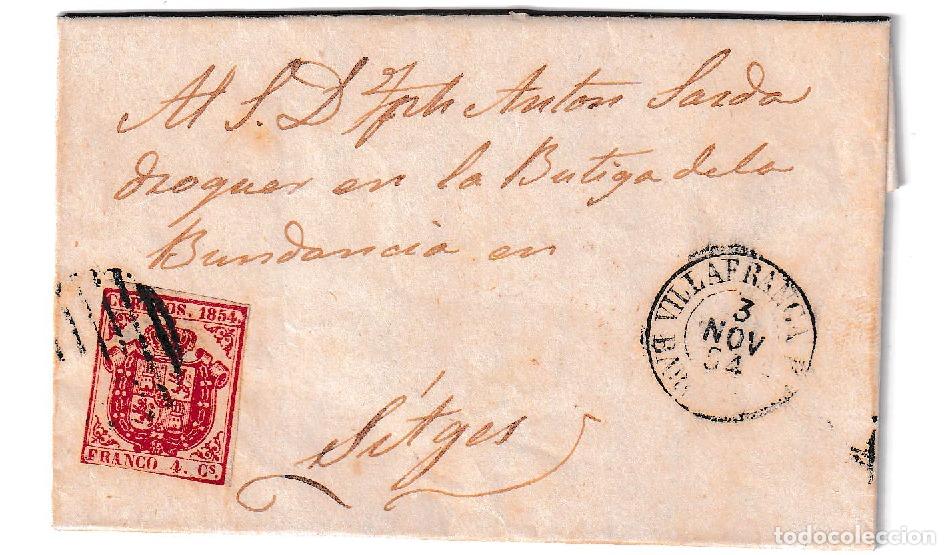 Al S. D Jph Anton Sarda
droguer en la Butiga dela
Bundancia en
Sitges
CORREOS. 1854.
FRANCO 4. Cs.
VILLAFRANCA
3
NOV
54
todocoleccion